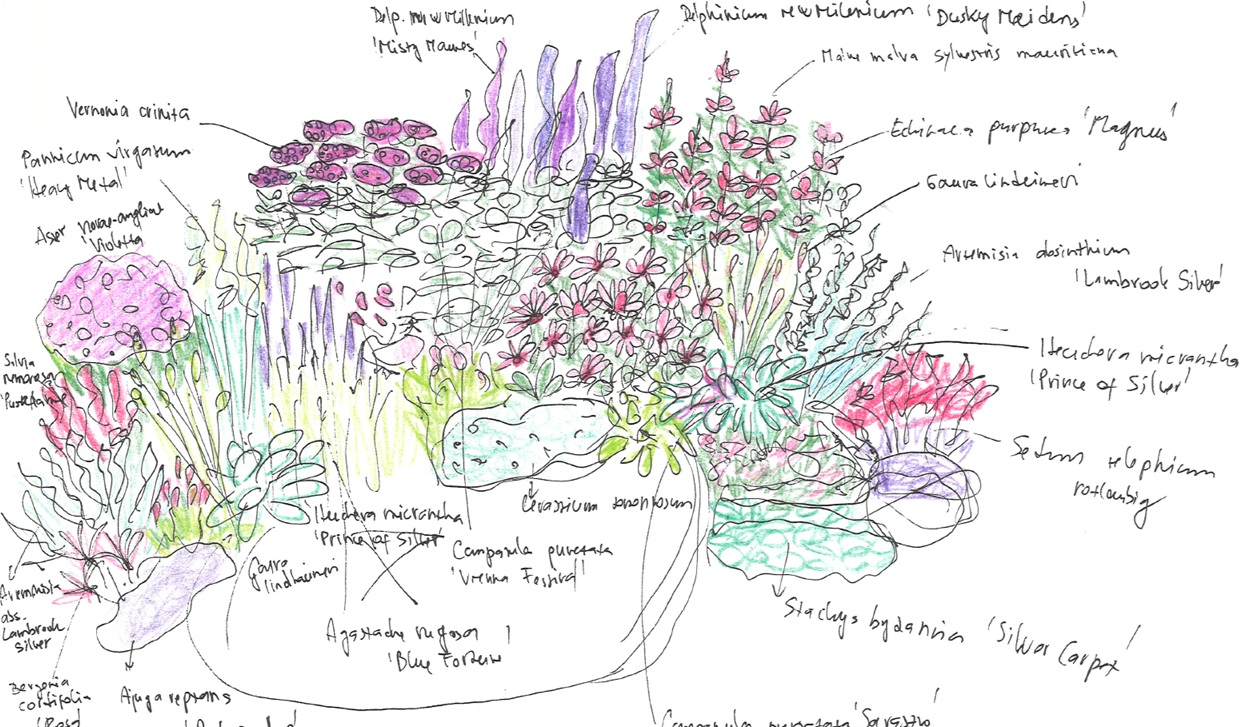 Delp. new Millenium
'Misty Mauves'
Delphinium new Milenium 'Dusky Maidens'
Malve malva sylvestris mauritiana
Vernonia crinita
Echinacea purpurea 'Magnus'
Pannicum virgatum
'Heavy Metal'
Gaura lindheimeri
Aser novae-angliae
'Violetta
Artemisia absinthium
'Lambrook Silver'
Heuchera micrantha
'Prince of Silver'
Silvia
nemorosa
Sedum telephium
Heuchera micrantha
'Prince of Silver'
Cerastium tomentosum
Gaura
lindheimeri
Campanula punctata
'Vienna Festival'
Artemisia
abs.
Lambrook
silver
Stachys byzantina 'Silver Carpet'
Agastache rugosa
'Blue Fortune'
Bergenia
cordifolia
Ajuga reptans
Campanula punctata 'Sarastro'